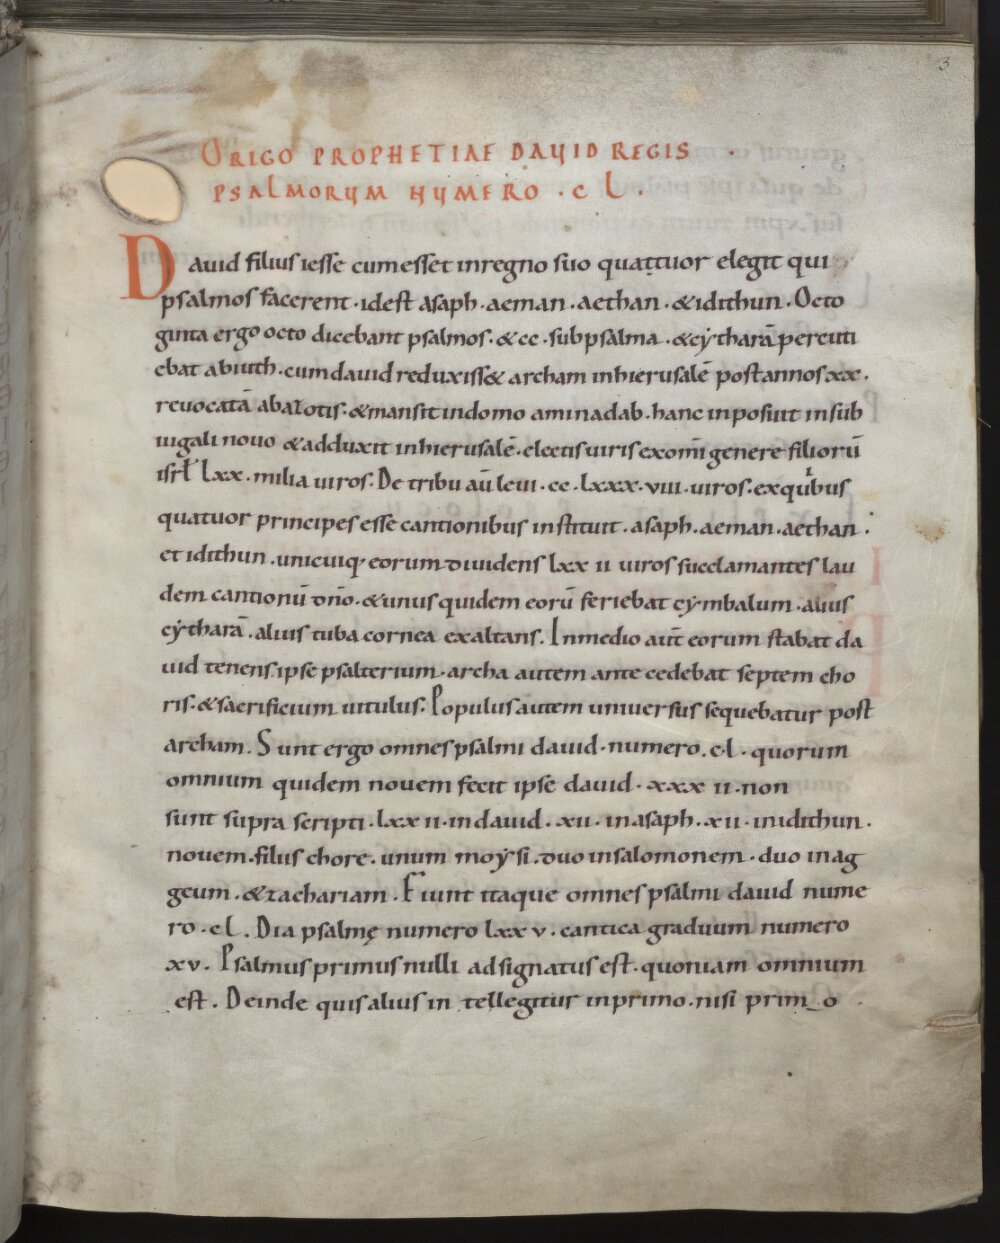 3
ORIGO PROPHETIAE DAVID REGIS .
PSALMORVM NVMERO . C L .
David filius iesse cum esset in regno suo quattuor elegit qui
psalmos facerent . id est asaph . aeman . aethan . & idithun . Octo
ginta ergo octo dicebant psalmos . & cc . subpsalma . & cytharā percuti
ebat abiuth . cum david reduxiss& archam in hierusalē post annos xx .
revocatā abazotis . & mansit in domo aminadab . hanc inposuit in sub
iugali novo & adduxit in hierusalē . electis viris ex omī genere filiorū
isrł lxx . milia viros . De tribu aū levi . cc . lxxx . viii . viros . ex quibus
quatuor principes esse cantionibus instituit . asaph . aeman . aethan .
et idithun . unicuiq; eorum dividens lxx ii viros succlamantes lau
dem cantionū dño . & unus quidem eorū feriebat cymbalum . alius
cytharā . alius tuba cornea exaltans . In medio aūt eorum stabat da
vid tenens ipse psalterium . archa autem antecedebat septem cho
ris . & sacrificium vitulus . Populus autem universus sequebatur post
archam . Sunt ergo omnes psalmi david . numero . c . l . quorum
omnium quidem novem fecit ipse david . xxx ii . non
sunt supra scripti . lxx ii . in david . xii . in asaph . xii . in idithun .
novem . filius chore . unum moysi . duo in salomonem . duo in ag
geum . & zachariam . Fiunt itaque omnes psalmi david nume
ro . c l . Diapsalmę numero lxx v . cantica graduum numero
xv . Psalmus primus nulli adsignatus est . quoniam omnium
est . Deinde quis alius intellegitur in primo . nisi primo .